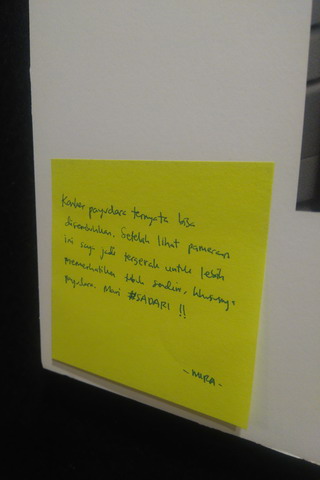 Kanker payudara ternyata bisa
disembuhkan. Setelah lihat pameran
ini saya jadi tergerak untuk lebih
memerhatikan tubuh sendiri, khususnya
payudara. Mari #SADARI !!
- MIRA -